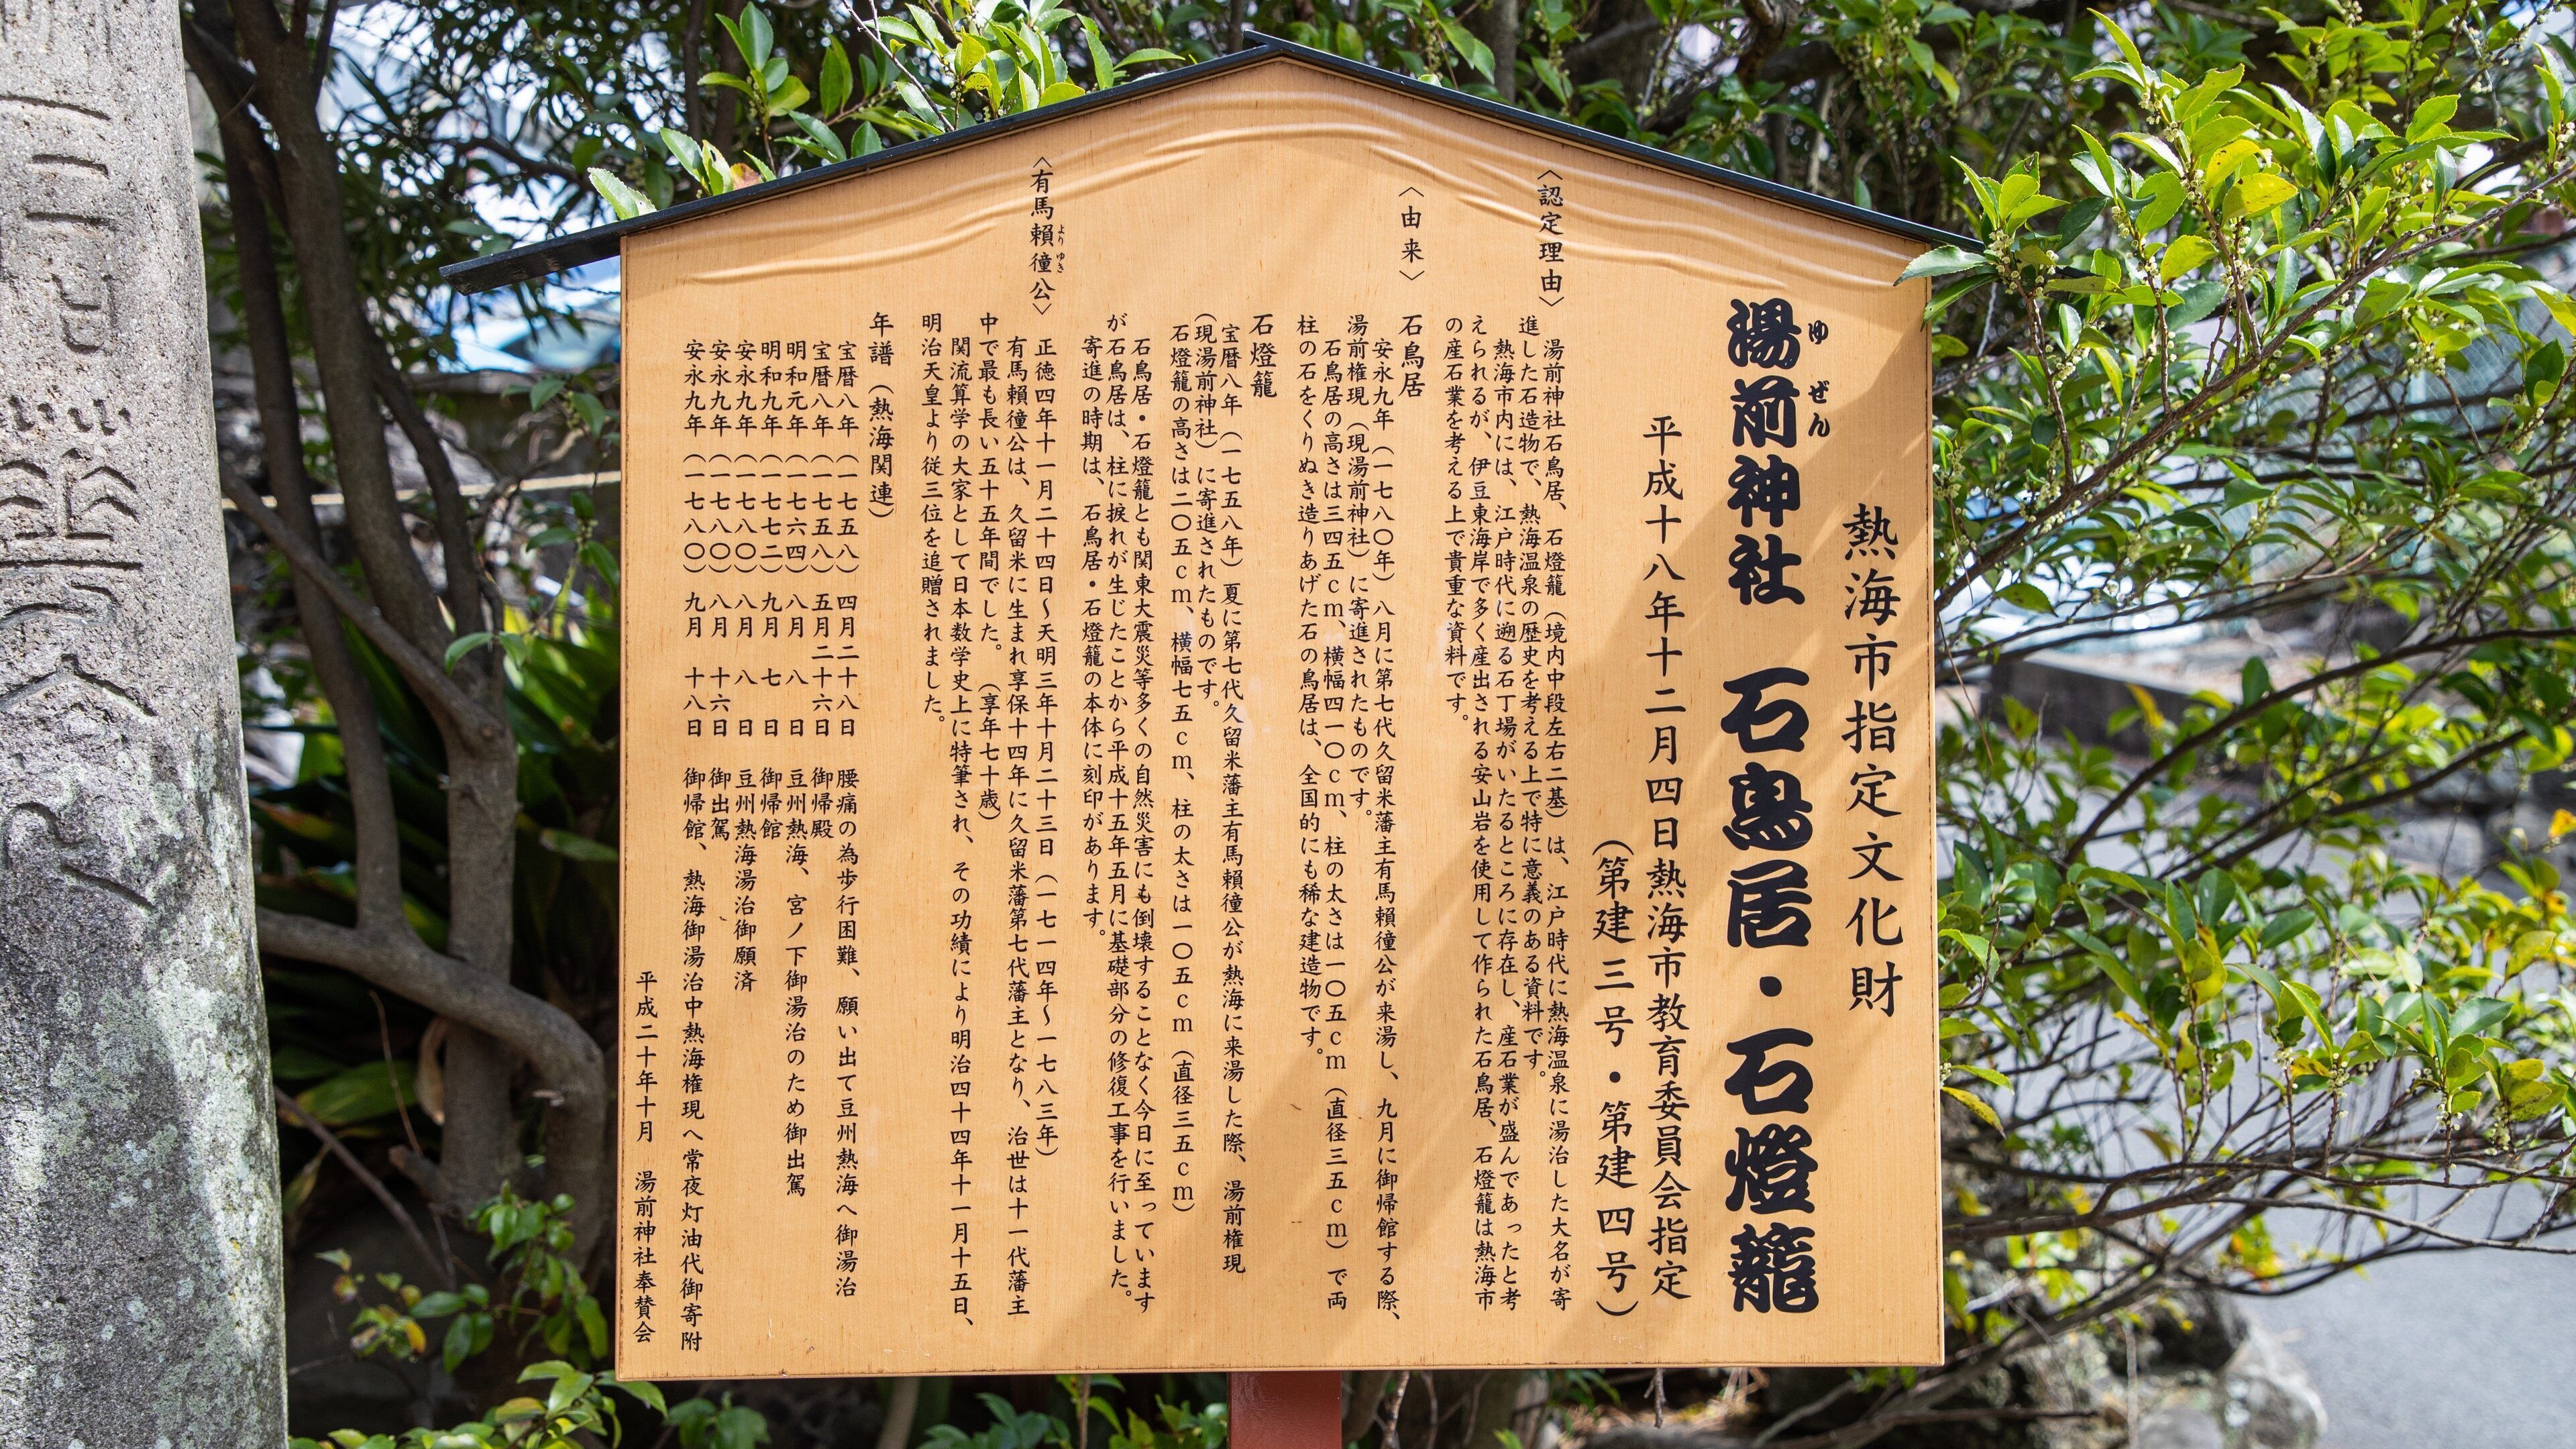 熱海市指定文化財
湯前神社 石鳥居・石燈籠
ゆ ぜん
平成十八年十二月四日熱海市教育委員会指定
(第建三号・第建四号)
〈認定理由〉
湯前神社石鳥居、石燈籠(境内中段左右二基)は、江戸時代に熱海温泉に湯治した大名が寄
進した石造物で、熱海温泉の歴史を考える上で特に意義のある資料です。
熱海市内には、江戸時代に遡る石丁場がいたるところに存在し、産石業が盛んであったと考
えられるが、伊豆東海岸で多く産出される安山岩を使用して作られた石鳥居、石燈籠は熱海市
の産石業を考える上で貴重な資料です。
〈由来〉
石鳥居
安永九年(一七八〇年)八月に第七代久留米藩主有馬頼徸公が来湯し、九月に御帰館する際、
湯前権現(現湯前神社)に寄進されたものです。
石鳥居の高さは三四五cm、横幅四一〇cm、柱の太さは一〇五cm(直径三五cm)で両
柱の石をくりぬき造りあげた石の鳥居は、全国的にも稀な建造物です。
石燈籠
宝暦八年(一七五八年)夏に第七代久留米藩主有馬頼徸公が熱海に来湯した際、湯前権現
(現湯前神社)に寄進されたものです。
石燈籠の高さは二〇五cm、横幅七五cm、柱の太さは一〇五cm(直径三五cm)
石鳥居・石燈籠とも関東大震災等多くの自然災害にも倒壊することなく今日に至っています
が石鳥居は、柱に捩れが生じたことから平成十五年五月に基礎部分の修復工事を行いました。
寄進の時期は、石鳥居・石燈籠の本体に刻印があります。
〈有馬頼徸公〉
より ゆき
正徳四年十一月二十四日～天明三年十月二十三日(一七一四年～一七八三年)
有馬頼徸公は、久留米に生まれ享保十四年に久留米藩第七代藩主となり、治世は十一代藩主
中で最も長い五十五年間でした。(享年七十歳)
関流算学の大家として日本数学史上に特筆され、その功績により明治四十四年十一月十五日、
明治天皇より従三位を追贈されました。
年譜(熱海関連)
宝暦八年(一七五八)四月二十八日 腰痛の為歩行困難、願い出て豆州熱海へ御湯治
宝暦八年(一七五八)五月二十六日 御帰殿
明和元年(一七六四)八月 八 日 豆州熱海、宮ノ下御湯治のため御出駕
明和九年(一七七二)九月 七 日 御帰館
安永九年(一七八〇)八月 八 日 豆州熱海湯治御願済
安永九年(一七八〇)八月 十六日 御出駕
安永九年(一七八〇)九月 十八日 御帰館、熱海御湯治中熱海権現へ常夜灯油代御寄附
平成二十年十月 湯前神社奉賛会